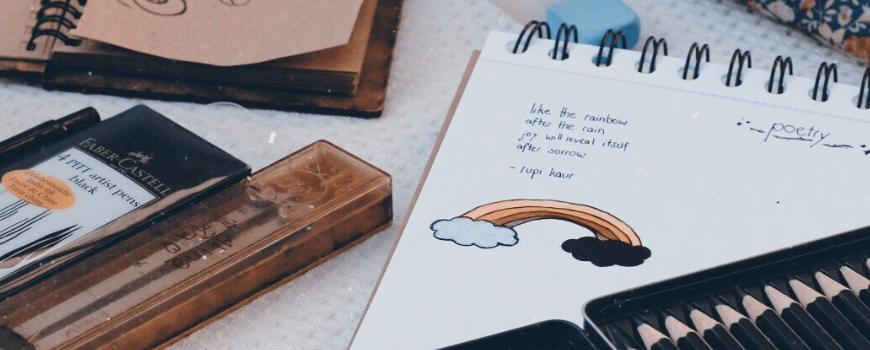 like the rainbow
after the rain
joy will reveal itself
after sorrow
- rupi kaur
poetry
FABER-CASTELL
4 PITT artist pens
black